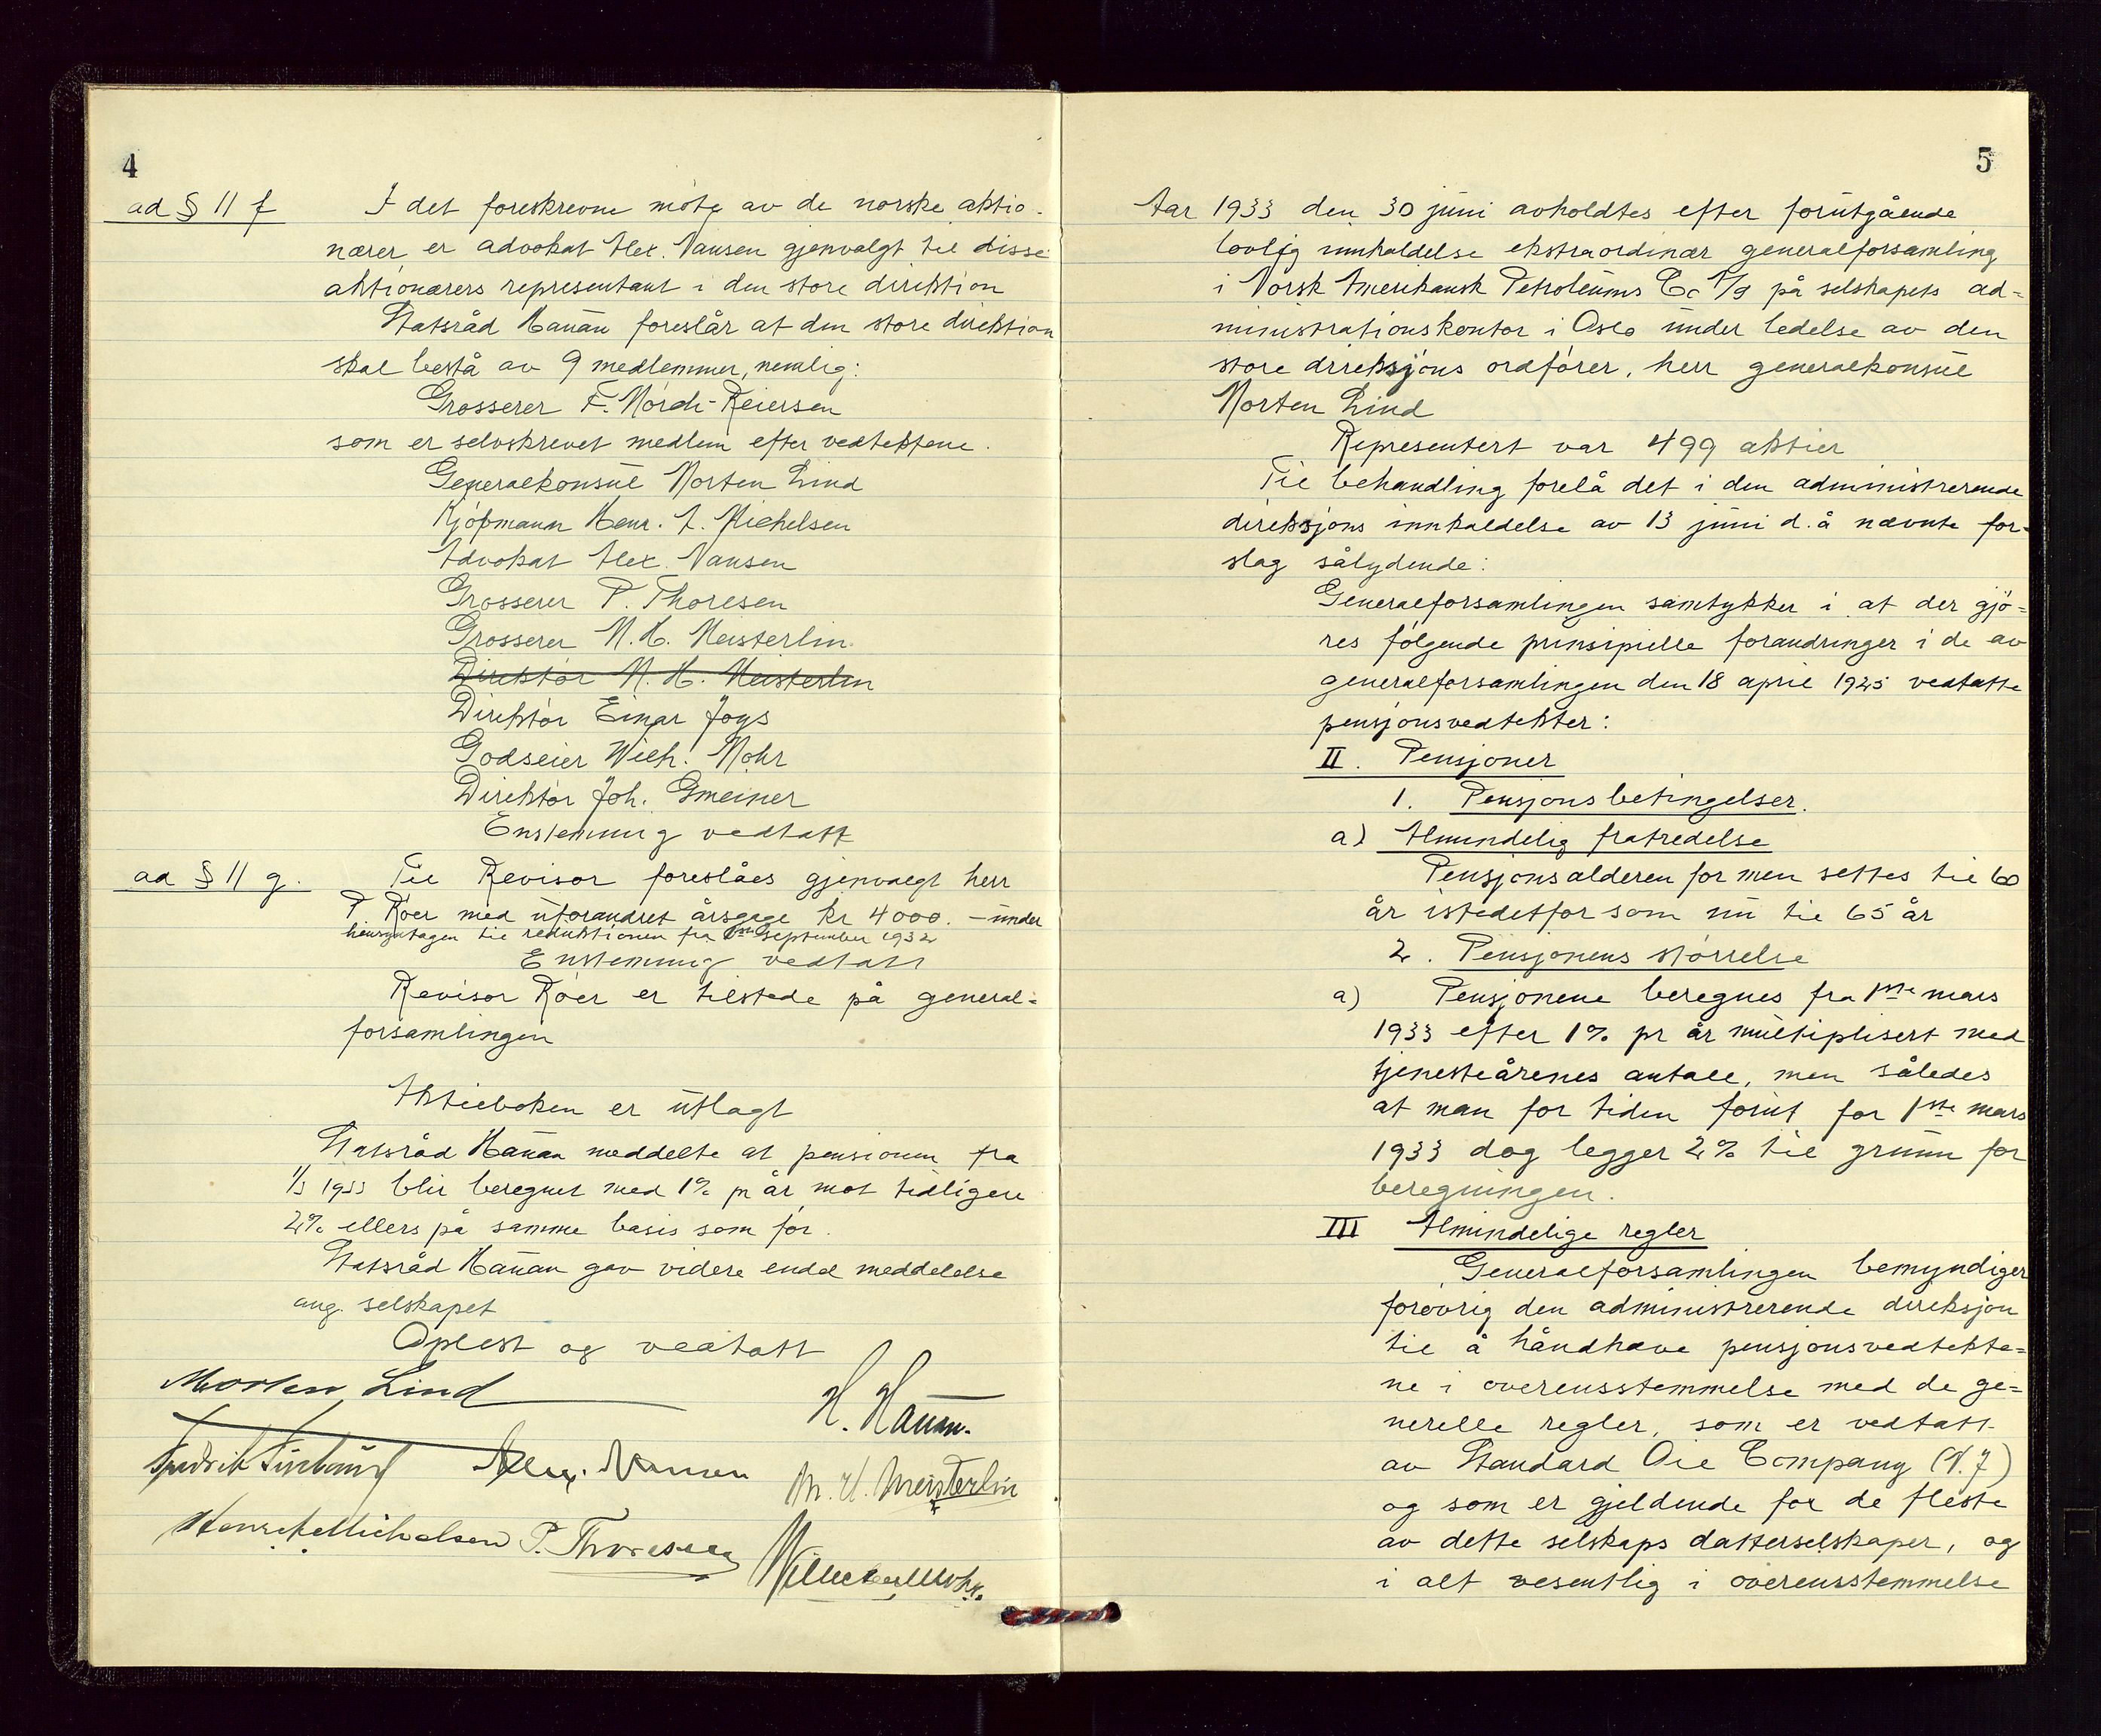 4
ad § 11 f
I det foreskrevne møte av de norske aktio-
nærer er advokat Alex. Nansen gjenvalgt til disse
aktionærers representant i den store direktion
Statsråd Hauan foreslår at den store direktion
skal bestå av 9 medlemmer, nemlig:
Grosserer F. Mørch-Reiersen
som er selvskrevet medlem efter vedtektene.
Generalkonsul Morten Lind
Kjøpmann Henr. A. Michelsen
Advokat Alex. Nansen
Grosserer P. Thoresen
Grosserer M. H. Meisterlin
Direktør M. H. Meisterlin
Direktør Einar Joys
Godseier Wilh. Mohr
Direktør Joh. Gmeiner
Enstemmig vedtatt
ad § 11 g.
Til Revisor foreslåes gjenvalgt herr
P. Røer med uforandret årsgage kr 4000. – under
hensyntagen til reduktionen fra 1ste september 1932
Enstemmig vedtatt
Revisor Røer er tilstede på general=
forsamlingen
Aktieboken er utlagt
Statsråd Hauan meddelte at pensionen fra
1/3 1933 blir beregnet med 1% pr år mot tidligere
2% ellers på samme basis som før.
Statsråd Hauan gav videre endel meddelelse
ang. selskapet
Oplest og vedtatt
Morten Lind
H. Hauan.
Fredrik
Alex. Nansen
M. H. Meisterlin
Henrik A Michelsen P. Thoresen
Wilhelm Mohr.
5
Aar 1933 den 30 juni avholdtes efter forutgående
lovlig innkaldelse ekstraordinær generalforsamling
i Norsk Amerikansk Petroleums Co A/S på selskapets ad=
ministrationskontor i Oslo under ledelse av den
store direksjons ordfører, herr generalkonsul
Morten Lind
Representert var 499 aktier
Til behandling forelå det i den administrerende
direksjons innkaldelse av 13 juni d.å nævnte for-
slag sålydende:
Generalforsamlingen samtykker i at der gjø=
res følgende prinsipielle forandringer i de av
generalforsamlingen den 18 april 1925 vedtatte
pensjonsvedtekter:
II. Pensjoner
1. Pensjonsbetingelser.
a) Almindelig fratredelse
Pensjonsalderen for men settes til 60
år istedetfor som nu til 65 år
2. Pensjonens størrelse
a) Pensjonene beregnes fra 1ste mars
1933 efter 1% pr år multiplisert med
tjenesteårenes antall, men således
at man for tiden forut for 1ste mars
1933 dog legger 2% til grunn for
beregningen.
III Almindelige regler
Generalforsamlingen bemyndiger
forøvrig den administrerende direksjon
til å håndhæve pensjonsvedtekte=
ne i overensstemmelse med de ge=
nerelle regler, som er vedtatt
av Standard Oil Company (N.J)
og som er gjeldende for de fleste
av dette selskaps datterselskaper, og
i alt vesentlig i overensstemmelse